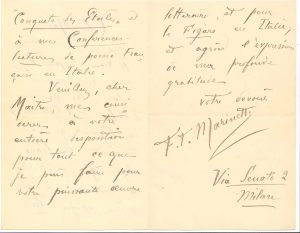 Conquête des Étoiles et
à mes Conférences-
lectures de poésie Fran
çaise en Italie.
Veuillez, cher
Maître, me consi
dérer à votre
entière disposition
pour tout ce que
je puis faire pour
votre puissante œuvre
littéraire, et pour
le Figaro en Italie,
et agréer l'expression
de ma profonde
gratitude
votre dévoué
F. T. Marinetti
Via Senato 2
Milan